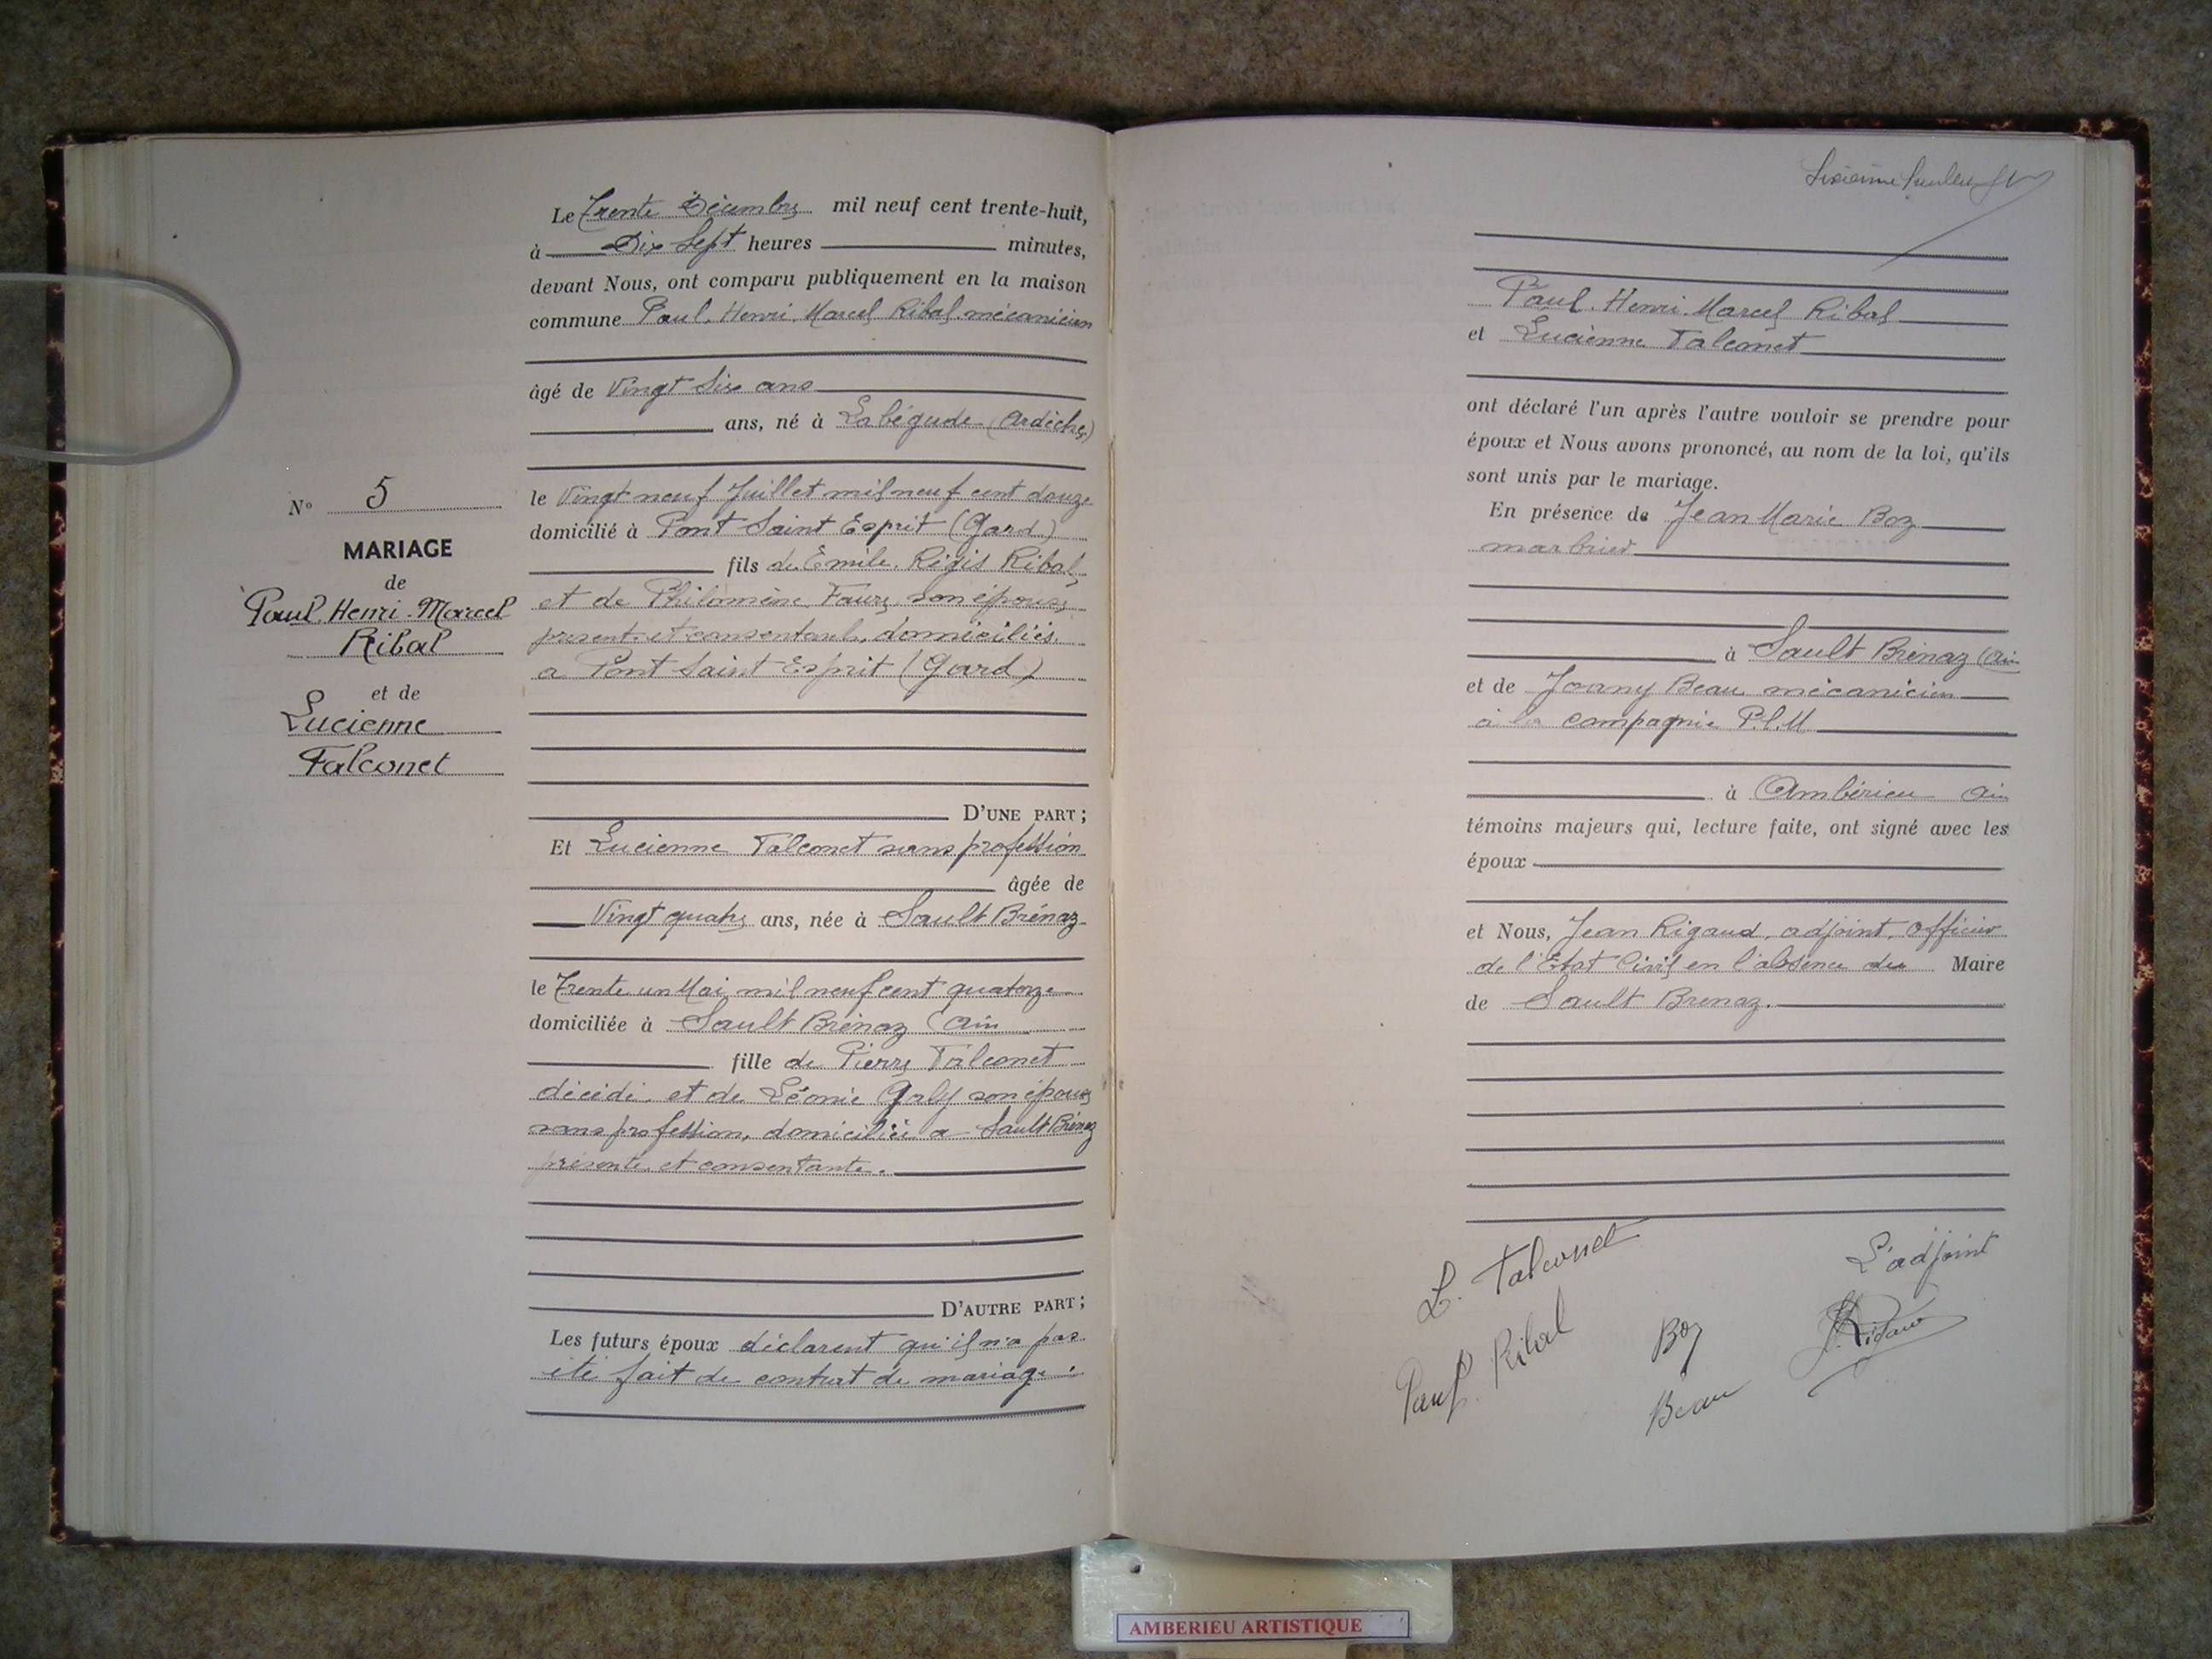 N° 5
MARIAGE
de
Paul. Henri. Marcel
Ribal
et de
Lucienne
Falconet
Le Trente Décembre mil neuf cent trente-huit,
à Dix Sept heures minutes,
devant Nous, ont comparu publiquement en la maison
commune Paul. Henri. Marcel Ribal mécanicien
âgé de Vingt Six ans
ans, né à Labégude (Ardèche)
le Vingt neuf Juillet mil neuf cent douze
domicilié à Pont Saint Esprit (Gard)
fils de Emile. Régis Ribal
et de Philomène Faure son épouse
présents et consentants, domiciliés
a Pont Saint Esprit (Gard)
D'UNE PART ;
Et Lucienne Falconet sans profession
âgée de
Vingt quatre ans, née à Sault Brénaz
le Trente un Mai mil neuf cent quatorze
domiciliée à Sault Brénaz (Ain
fille de Pierre Falconet
décédé et de Léonie Galy son épouse
sans profession, domiciliée a Sault Brénaz
présente et consentante.
D'AUTRE PART ;
Les futurs époux déclarent qu'il n'a pas
été fait de contrat de mariage.
Paul. Henri. Marcel Ribal
et Lucienne Falconet
ont déclaré l'un après l'autre vouloir se prendre pour
époux et Nous avons prononcé, au nom de la loi, qu'ils
sont unis par le mariage.
En présence de Jean Marie Boz
marbrier
à Sault Brénaz (Ain
et de Joany Beau mécanicien
à la compagnie P.L.M
à Ambérieu Ain
témoins majeurs qui, lecture faite, ont signé avec les
époux
et Nous, Jean Rigaud, adjoint, officier
de l'Etat Civil en l'absence du Maire
de Sault Brenaz.
L. Falconet
L'adjoint
Paul Ribal
Boz
J. Rigaud
Beau
AMBERIEU ARTISTIQUE